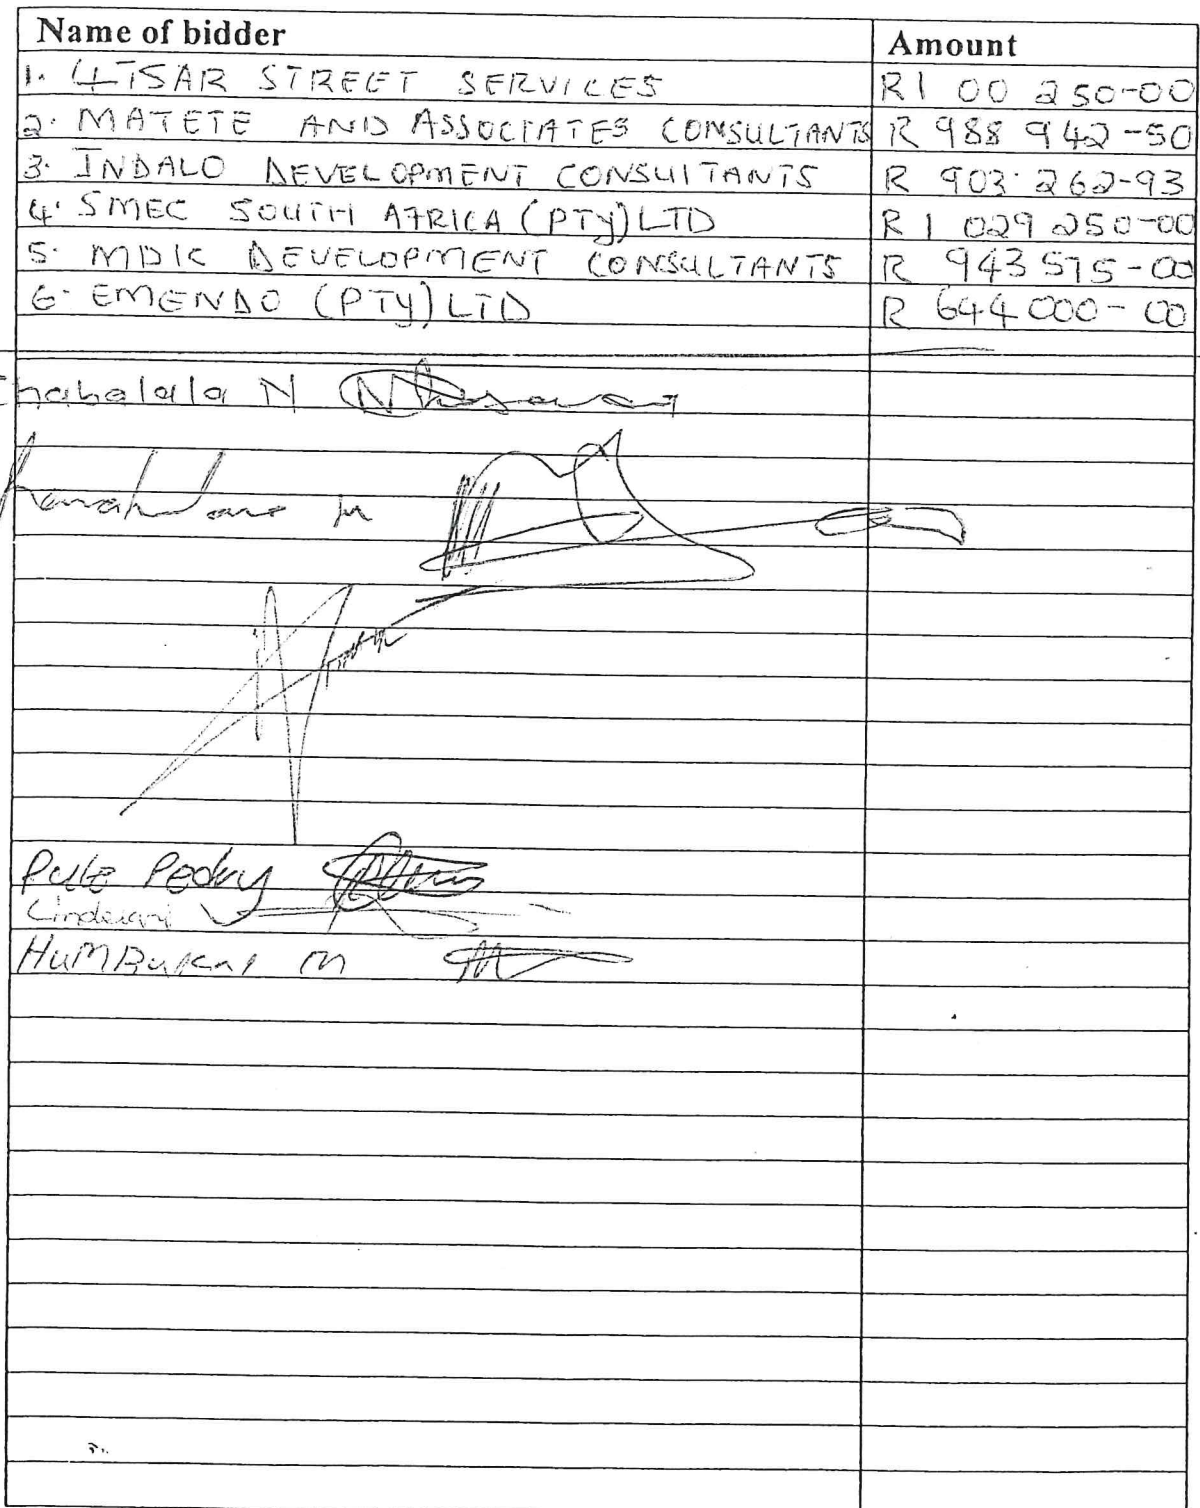 Name of bidder Amount
1. 4TSAR STREET SERVICES R1 00 250-00
2. MATETE AND ASSOCIATES CONSULTANTS R 988 942-50
3. INDALO DEVELOPMENT CONSULTANTS R 903 262-93
4. SMEC SOUTH AFRICA (PTY) LTD R 1 029 250-00
5. MDK DEVELOPMENT CONSULTANTS R 943 575-00
6. EMENDO (PTY) LTD R 644 000-00
Chabalala N
M
Pule Pedry
HUMBUKANI M